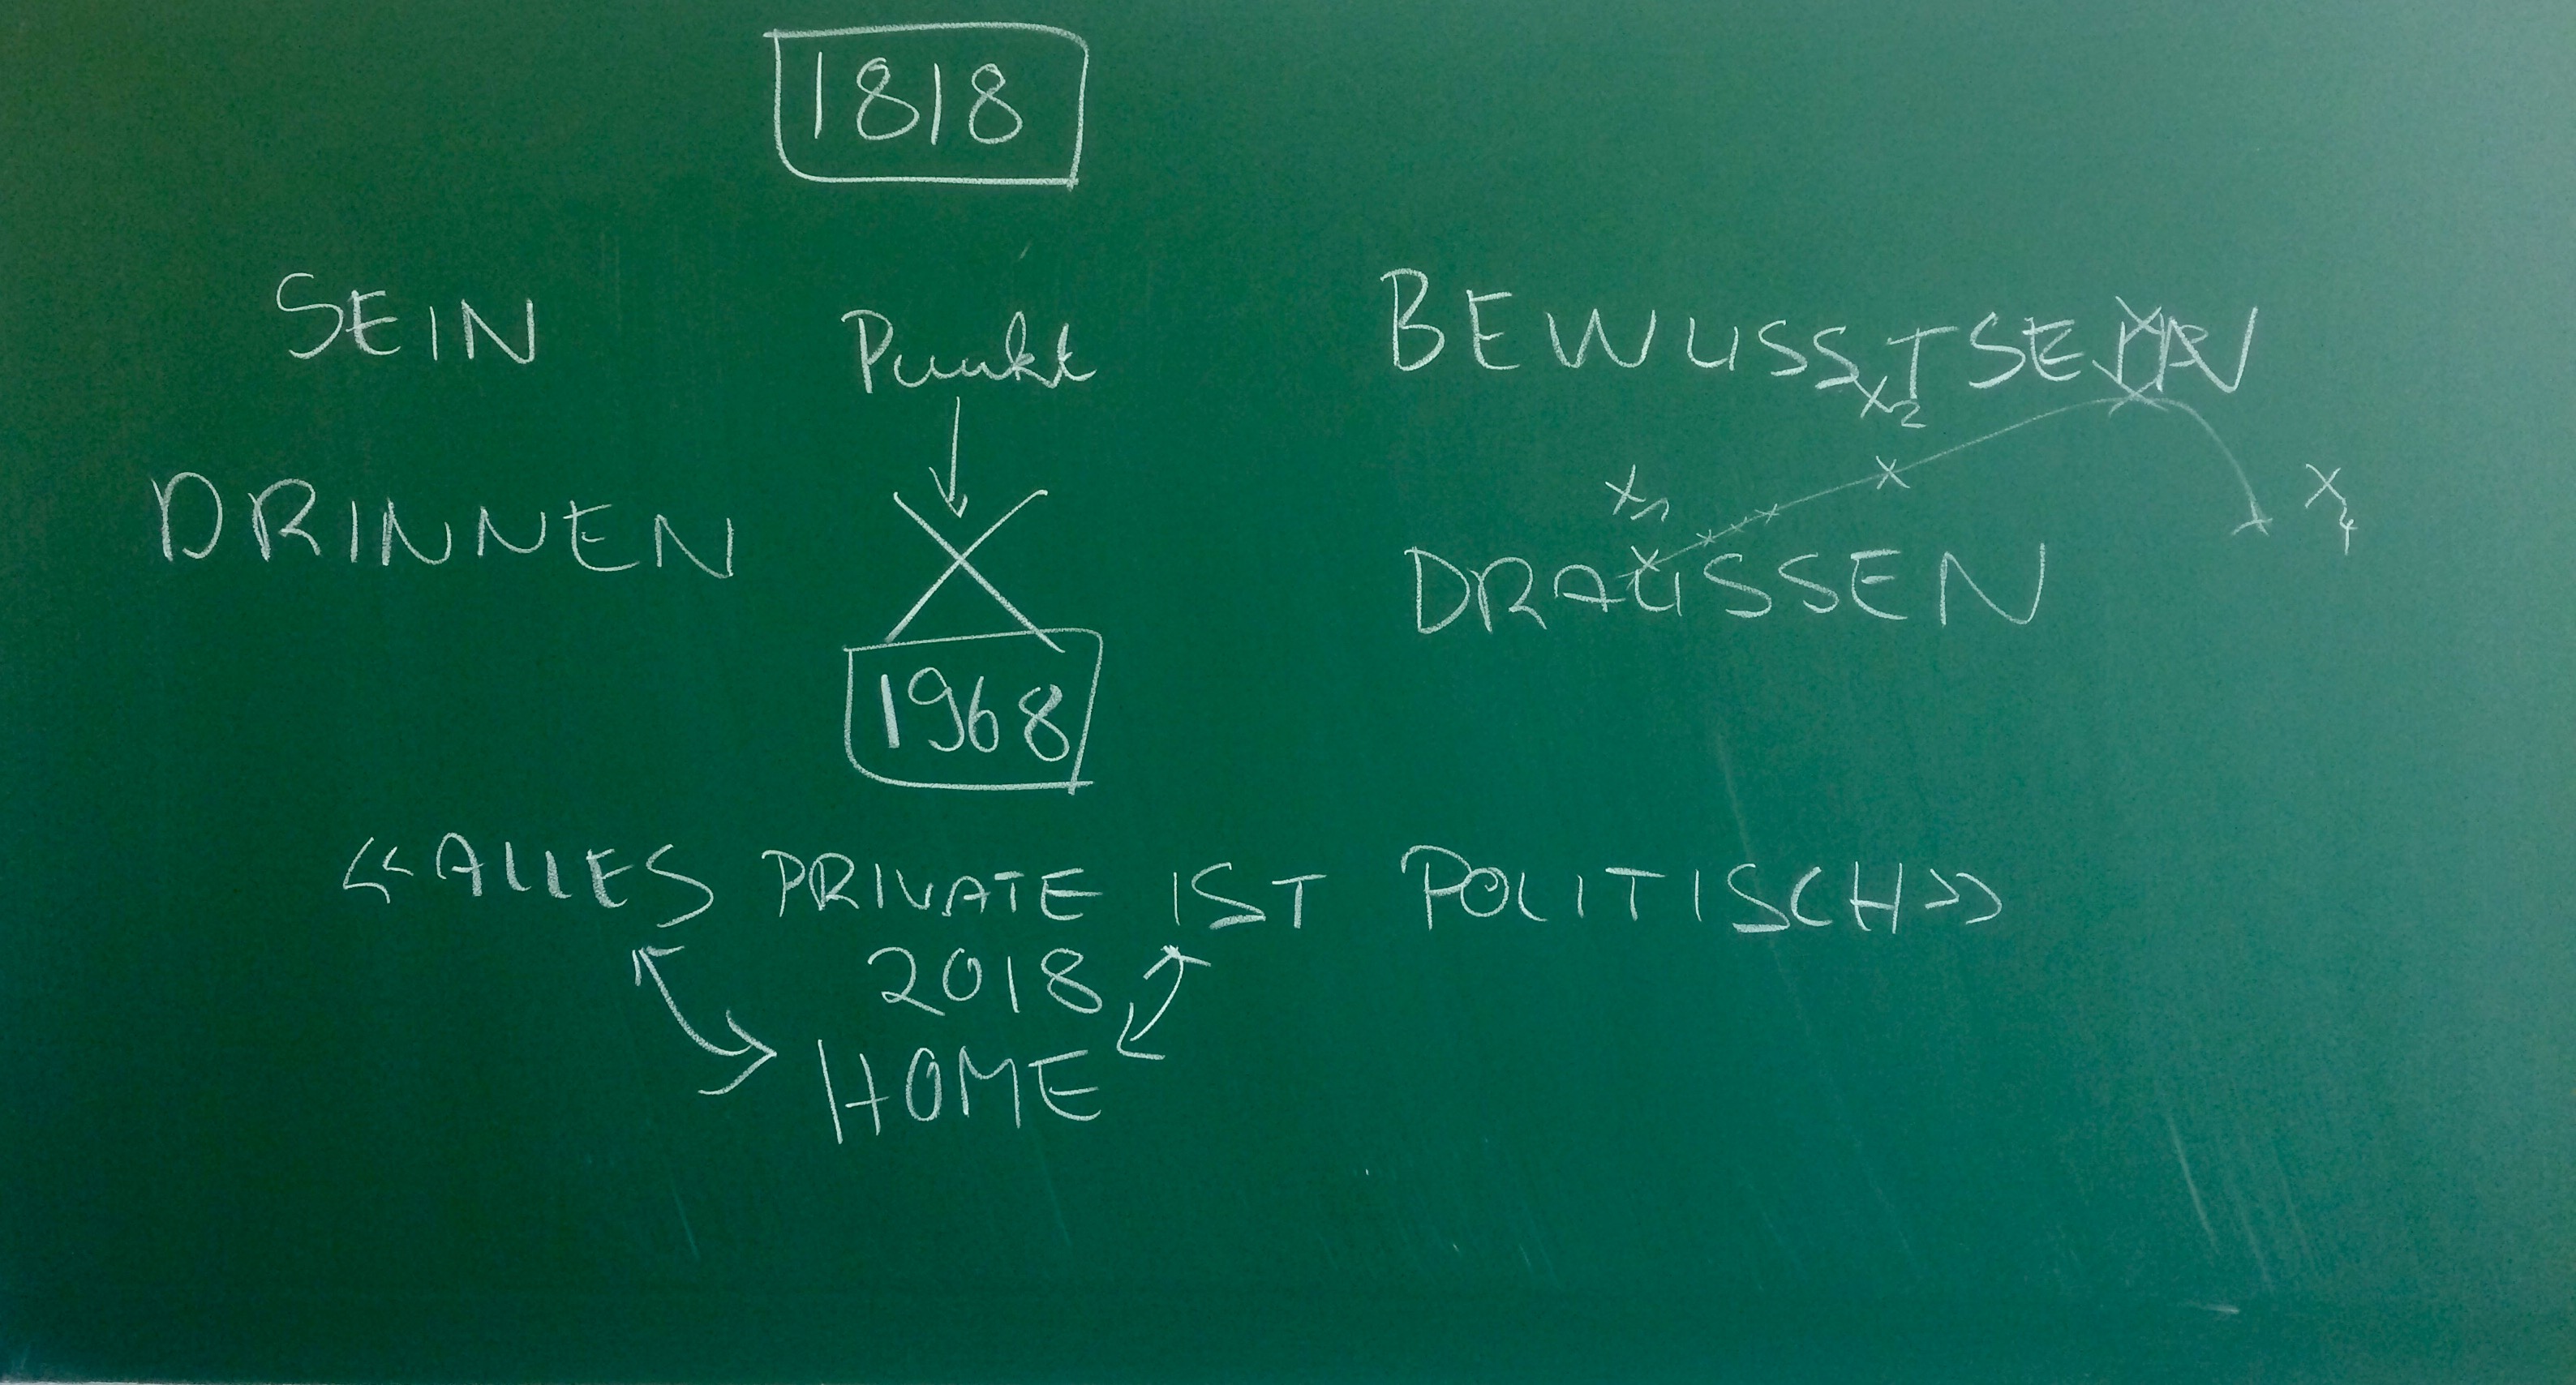 1818
SEIN Punkt BEWUSSTSEIN
X2
DRINNEN X1 X4
DRAUSSEN
1968
«ALLES PRIVATE IST POLITISCH»
2018
HOME